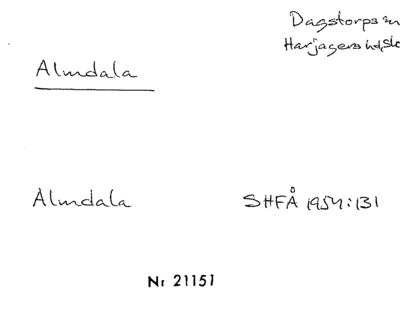 Dagstorps sn
Harjagers hd, Sk
Almdala
Almdala SHFÅ 1954:131
Nr 21151